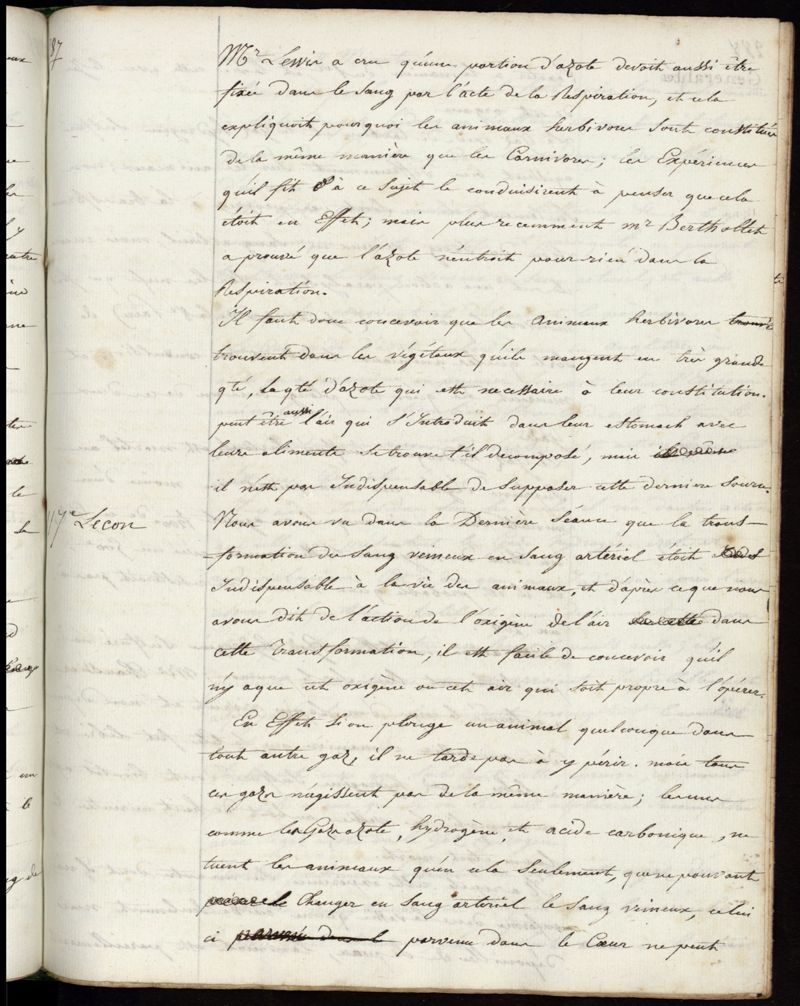 87
Mr Lewis a cru qu'une portion d'azote devoit aussi être
fixée dans le sang par l'acte de la Respiration, et cela
expliquoit pourquoi les animaux herbivores sont constitués
de la même manière que les Carnivores; les Expériences
qu'il fit à ce sujet le conduisirent à penser que cela
étoit en Effet; mais plus recemment mr Berthollet
a prouvé que l'azote n'entroit pour rien dans la
Respiration.
Il faut donc concevoir que les animaux herbivores
trouvent dans les végétaux qu'ils mangent en très grande
qté, la qté d'azote qui est necessaire à leur constitution.
peut être aussi l'air qui s'Introduit dans leur estomach avec
leurs alimens se trouve t'il décomposé, mais
il n'est pas Indispensable de supposer cette derniere source.
17e Lecon
Nous avons vu dans la Dernière Séance que la trans-
-formation du sang veineux en sang artériel étoit
Indispensable à la vie des animaux, et d'après ce que nous
avons dit de l'action de l'oxigène de l'air dans
cette transformation, il est facile de concevoir qu'il
n'y a que cet oxigène ou cet air qui soit propre à l'opérer.
En Effet si on plonge un animal quelconque dans
tout autre gaz, il ne tarde pas à y périr. mais tous
ces gazs n'agissent pas de la même manière; les uns
comme les Gazs azote, hydrogène, et acide carbonique, ne
tuent les animaux qu'en cela seulement, que ne pouvant
Changer en sang arteriel le sang veineux, celui
ci parvenu dans le Cœur ne peut